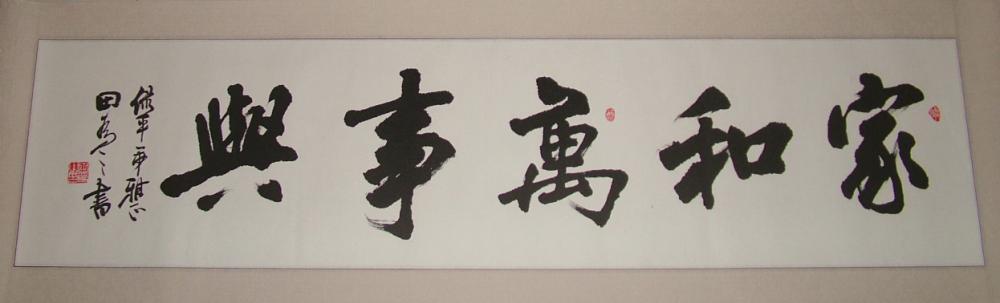 家和萬事興
平弟雅正
田書